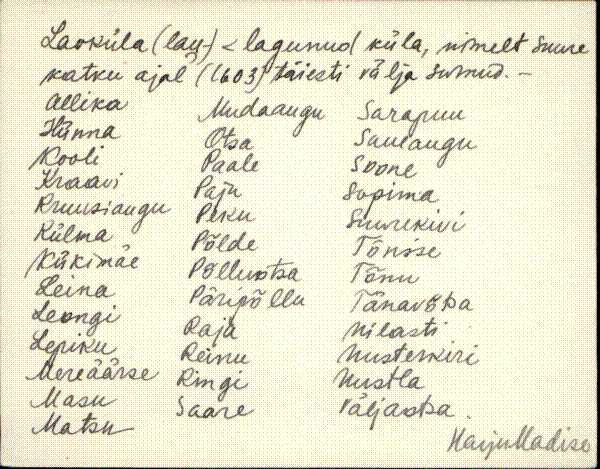 Laoküla (lau-) < lagunud küla, nimelt suure
katku ajal (1603) täiesti välja surnud. –
Allika
Hünna
Kooli
Kraavi
Kruusiaugu
Külma
Kükimäe
Leina
Leongi
Lepiku
Mereäärse
Masu
Matsu
Mudaaugu
Otsa
Paale
Paju
Peku
Põlde
Põlluotsa
Päripõllu
Raja
Reinu
Ringi
Saare
Sarapuu
Saueaugu
Soone
Sopima
Suurekivi
Tõnise
Tõnu
Tänavotsa
Nilasti
Uustla
Väljaotsa.
HarjuMadise